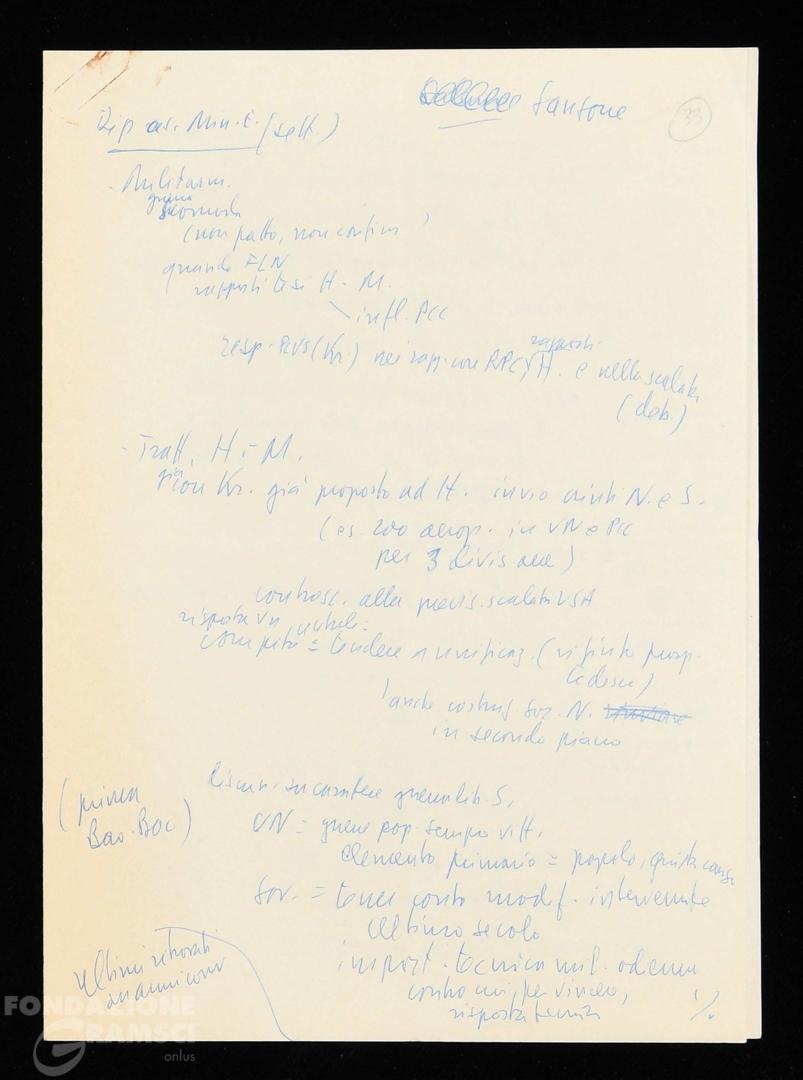 Sansone
33
Dip. as. Min. E. (sett.)
- Militarm.
guerra
scomoda
(non patto, non confini)
quando FLN
rapporti tesi H - M.
infl. PCC
rapporti
resp. PCUS (Kr.) nei rapp. con RPC, H. e nella scalata
(deb.)
- Tratt. H - M.
già
con Kr. già proposto ad H. invio aiuti N. e S.
(es. 200 aerop. in VN e PCC
per 3 divis. aeree)
controsc. alla previs. scalata USA
risposta VN
compito = tendere a unificaz. (rifiuto prosp.
tedesca)
anche costruz. soc. N.
in secondo piano
discuss. su carattere guerra lib. S.
(prima
Bao-Bac)
VN = guerre pop. sempre vitt.
elemento primario = popolo, giusta causa
Sov. = tener conto modif. intervenute
ultimo secolo
import. tecnica mil. odierna
contro cui, per vincere,
risposta tecnica
ultimi ritrovati
americani
./.
FONDAZIONE
GRAMSCI
onlus